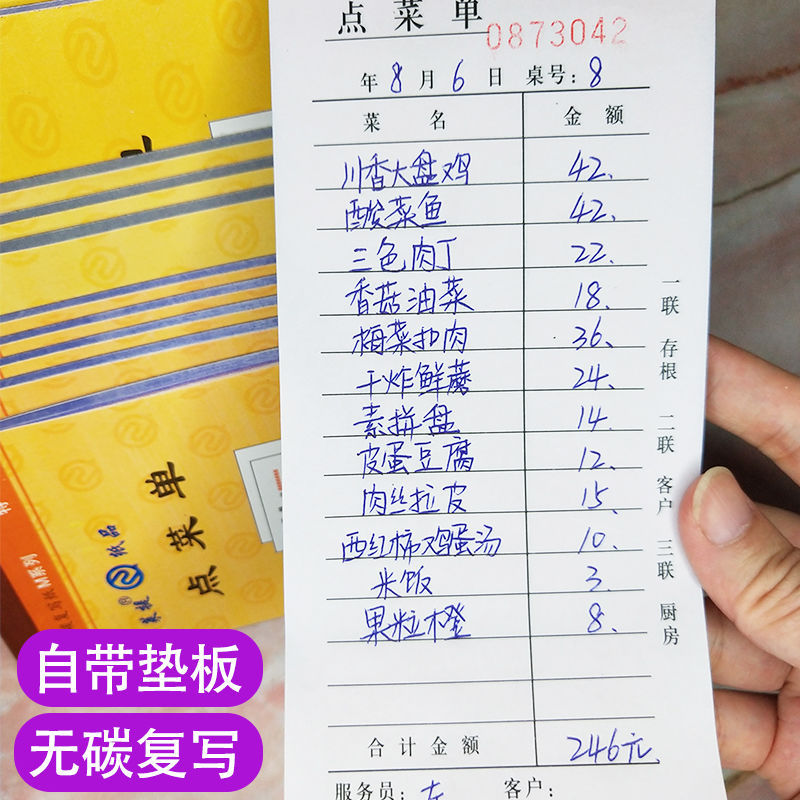 点菜单
0873042
年8月6日 桌号:8
菜 名 金 额
川香大盘鸡 42、
酸菜鱼 42、
三色肉丁 22、
香菇油菜 18、
梅菜扣肉 36、
干炸鲜蘑 24、
素拼盘 14、
皮蛋豆腐 12、
肉丝拉皮 15、
西红柿鸡蛋汤 10、
米饭 3、
果粒橙 8、
合计金额 246元
服务员: 客户:
一联 存根 二联 客户 三联 厨房
点菜单
纸品
自带垫板
无碳复写